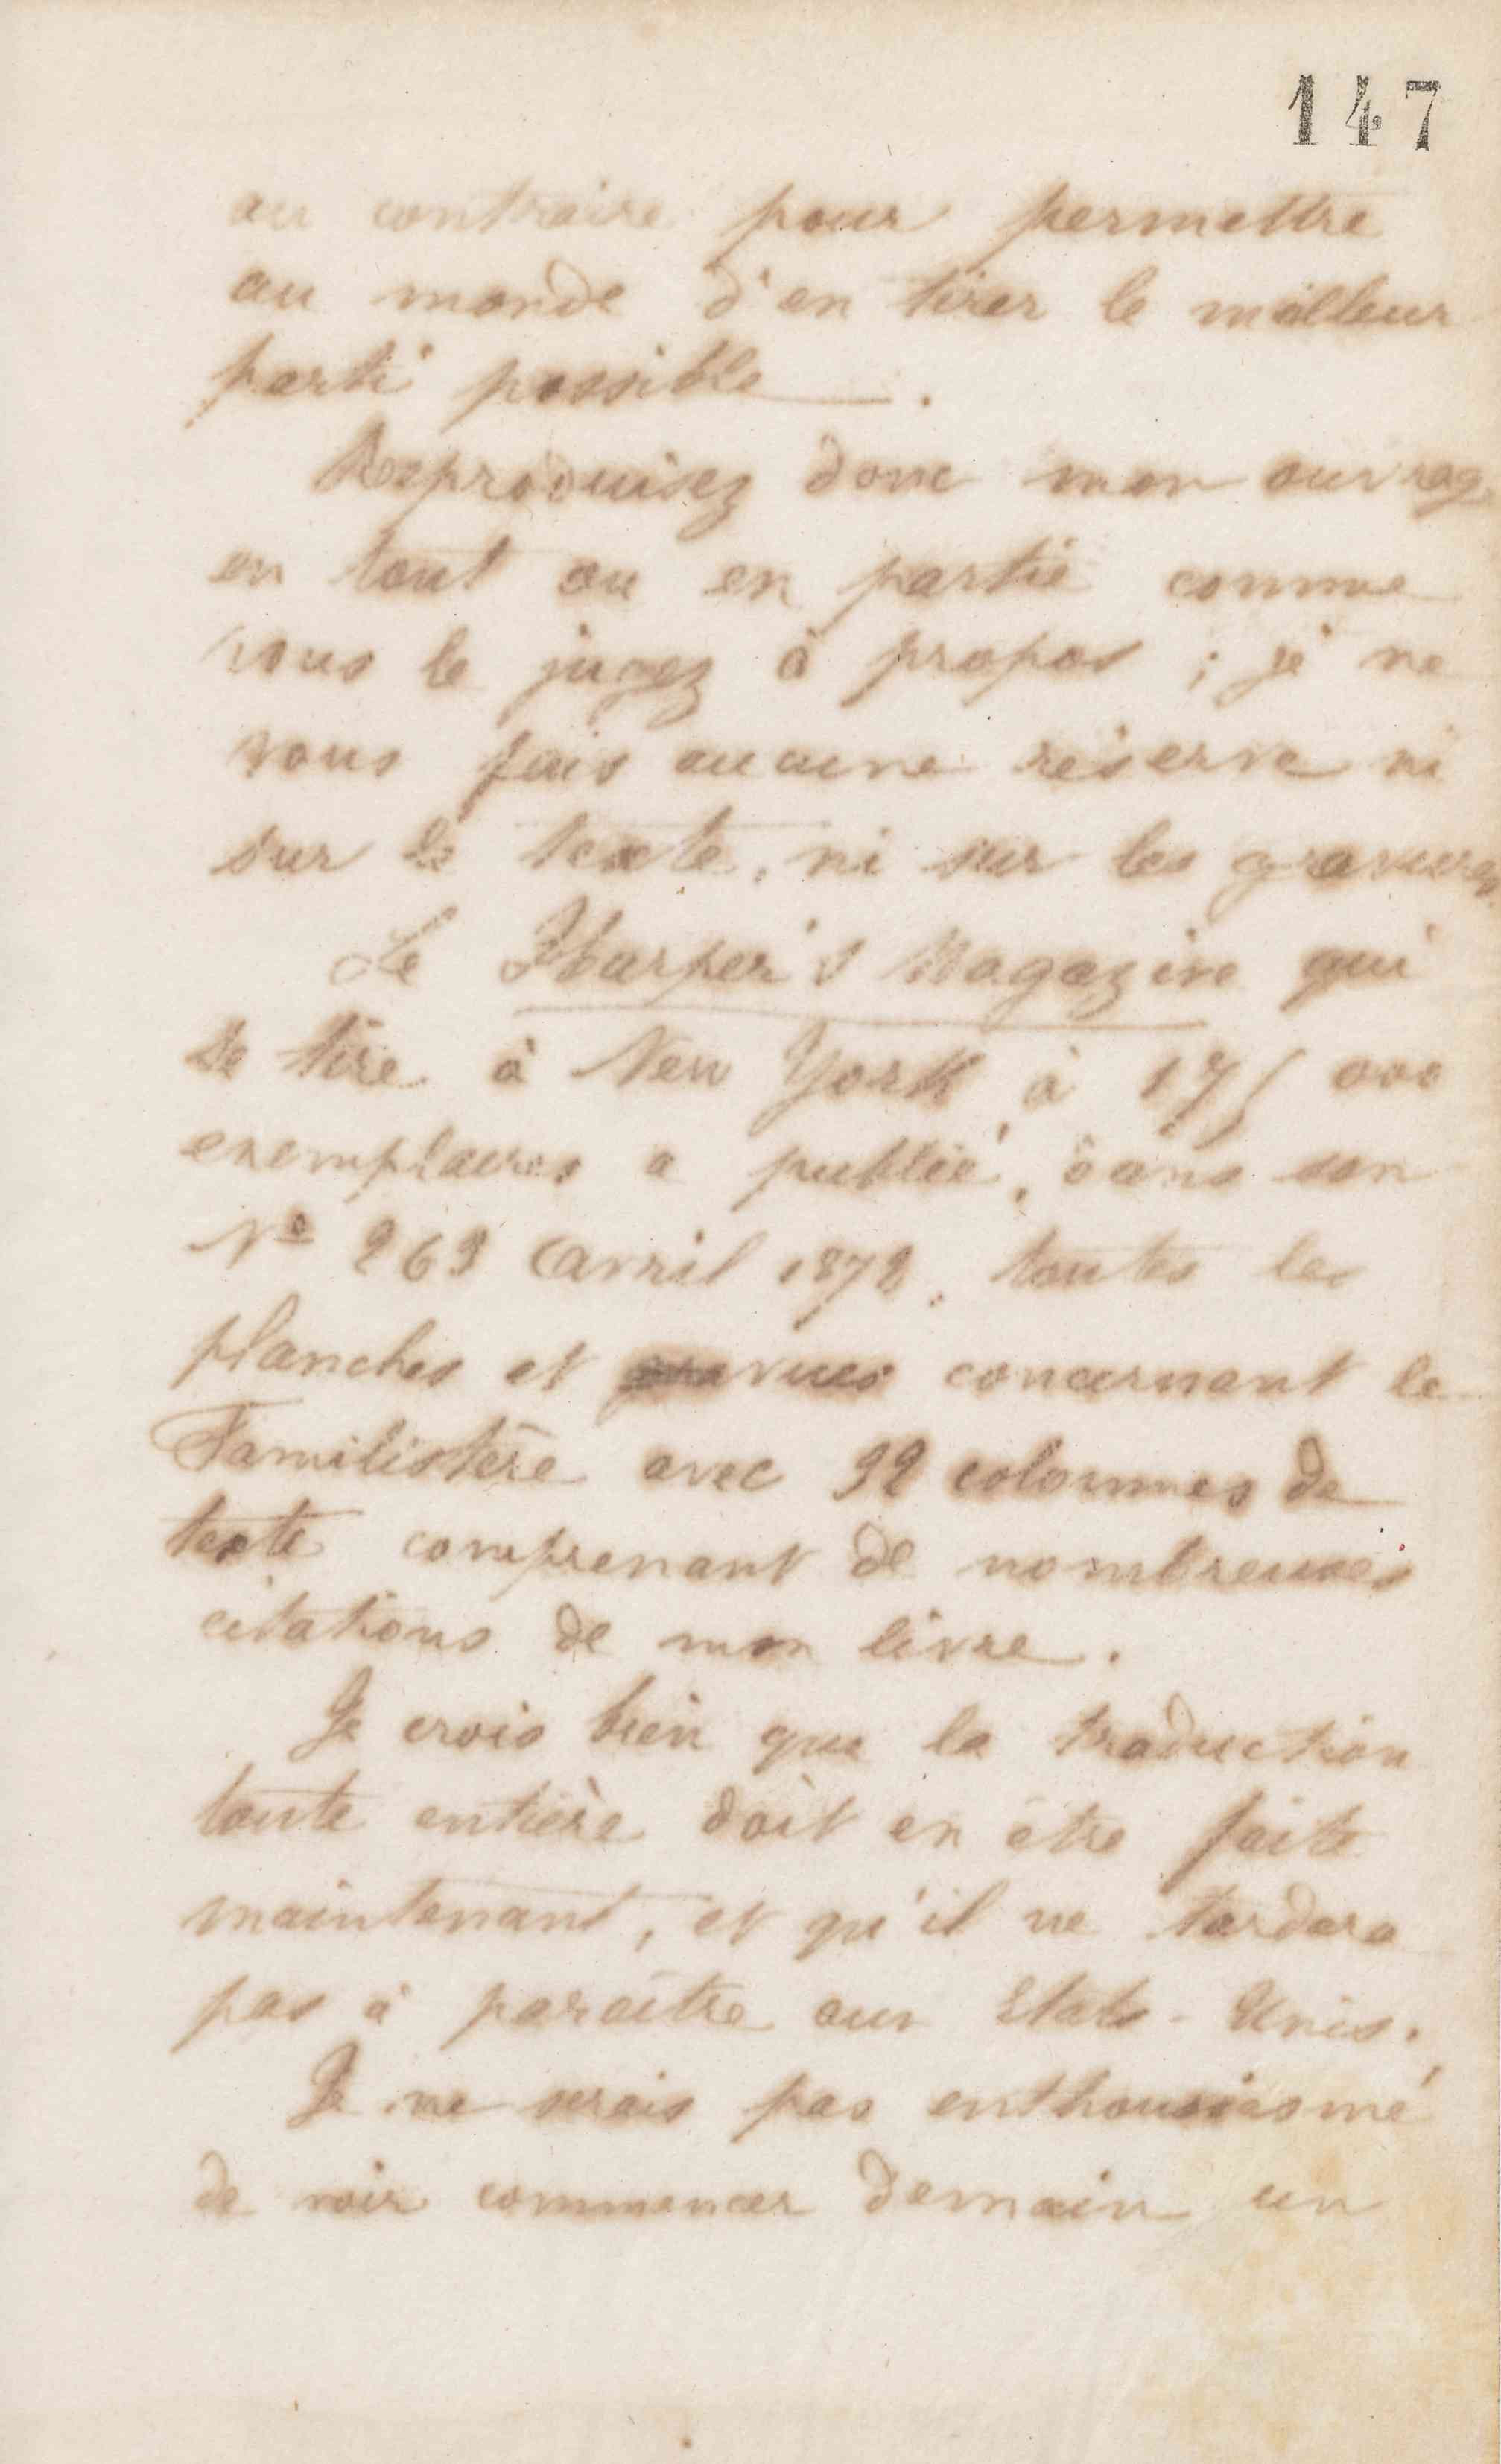 147
au contraire pour permettre
au monde d'en tirer le meilleur
parti possible.
Reproduisez donc mon ouvrage
en tout ou en partie comme
vous le jugez à propos ; je ne
vous fais aucune réserve ni
sur le texte, ni sur les gravures.
Le Harper's Magazine qui
se tire à New York à 175 000
exemplaires a publié, dans son
No 263 avril 1872, toutes les
planches et vues concernant le
Familistère avec 32 colonnes de
texte comprenant de nombreuses
citations de mon livre.
Je crois bien que la traduction
toute entière doit en être faite
maintenant, et qu'il ne tardera
pas à paraître aux Etats-Unis.
Je ne serais pas enthousiasmé
de voir commencer demain un